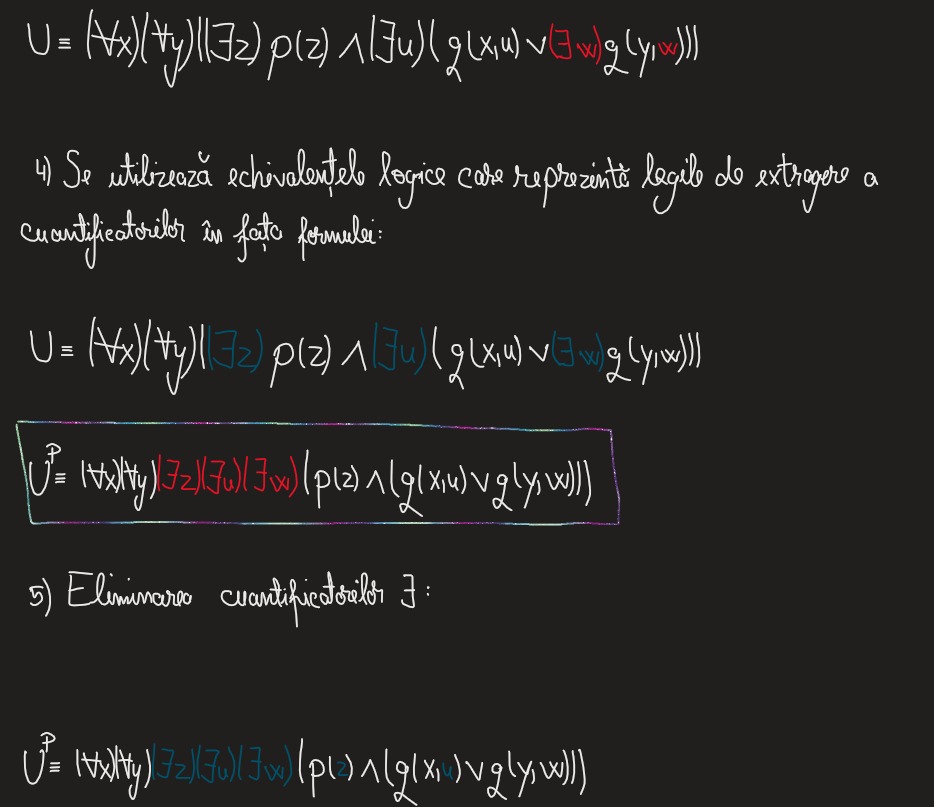 U ≡ (∀x)(∀y)((∃z) p(z) ∧ (∃u)(g(x,u) ∨ (∃w)g(y,w)))
4) Se utilizează echivalențele logice care reprezintă legile de extragere a
cuantificatorilor în fața formulei:
U ≡ (∀x)(∀y)((∃z) p(z) ∧ (∃u)(g(x,u) ∨ (∃w)g(y,w)))
Uᴾ ≡ (∀x)(∀y)(∃z)(∃u)(∃w)(p(z) ∧ (g(x,u) ∨ g(y,w)))
5) Eliminarea cuantificatorilor ∃:
Uᴾ ≡ (∀x)(∀y)(∃z)(∃u)(∃w)(p(z) ∧ (g(x,u) ∨ g(y,w)))